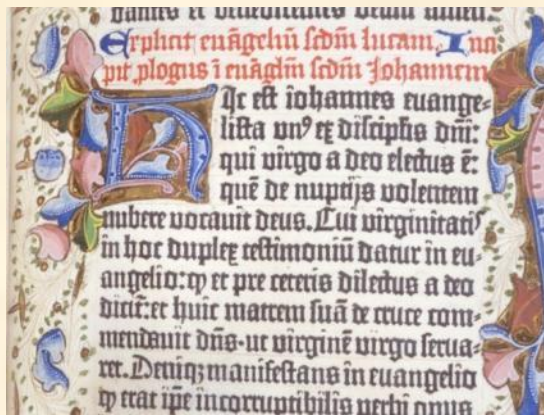 dantes et benedicentes deum amen.
Explicit euāgeliū scdm̄ lucam. Inci
pit plogus ī euāgliū scdm̄ Johannem
Hic est iohannes euange-
lista vn⁹ ex discip̄lis dn̄i:
qui virgo a deo electus ē:
quē de nuptijs volentem
nubere vocauit deus. Cui virginitatis
in hoc duplex testimoniū datur in eu-
angelio: ꝙ et pre ceteris dilectus a deo
dicit̄: et huic matrem suā de cruce com-
mendauit dn̄s. ut virginē virgo serua-
ret. Deniqꝫ manifestans in euangelio
ꝙ erat ip̄e incorruptibilis verbi opus